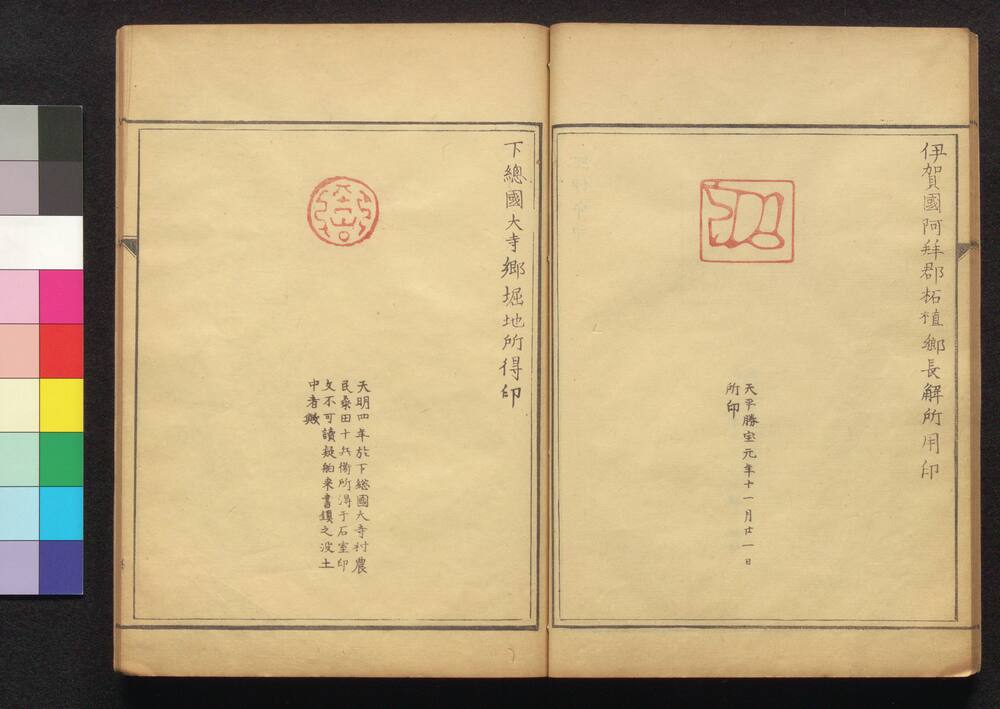 伊賀國阿拜郡柘植鄉長解所用印
天平勝宝元年十一月廿一日
所印
下總國大寺鄉堀地所得印
天明四年於下総國大寺村農
民桑田十兵衛所得于石室印
文不可讀疑舶来書鎮之没土
中者歟